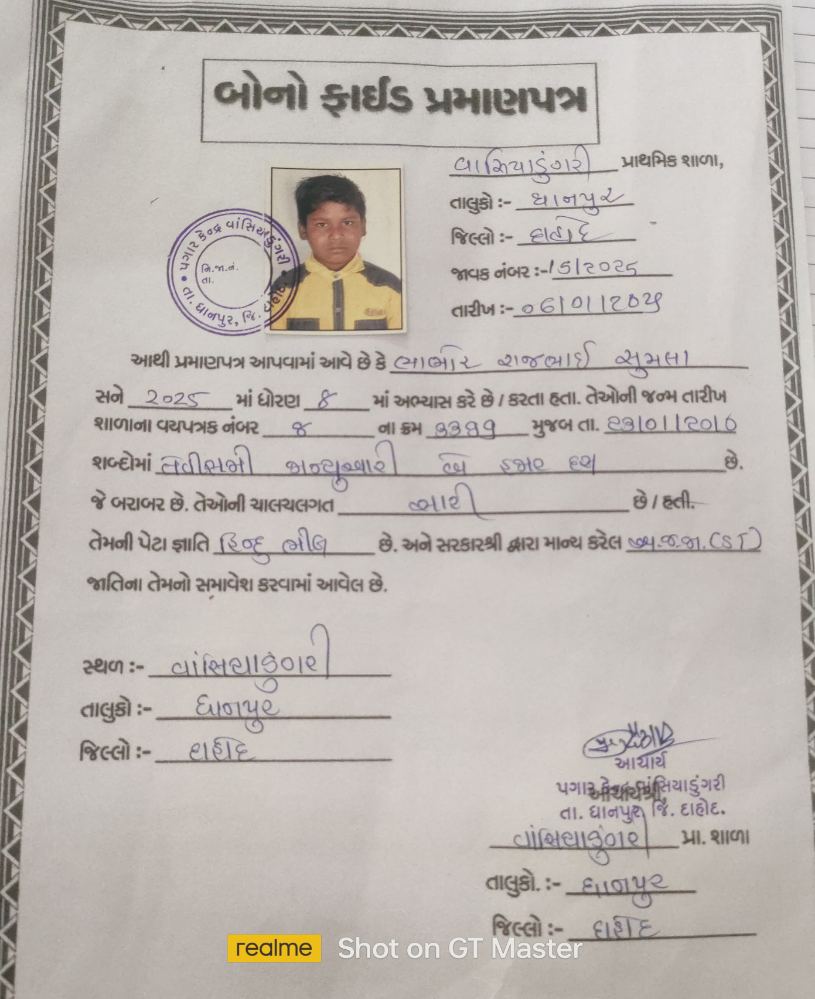 બોનો ફાઈડ પ્રમાણપત્ર
વાસિયાડુંગરી પ્રાથમિક શાળા,
તાલુકો :- ધાનપુર
જિલ્લો :- દાહોદ
જાવક નંબર :- 15/2025
તારીખ :- ૦૬/૦૧/૨૦૨૫
પગાર કેન્દ્ર વાંસિયાડુંગરી
જિ.જા.નં.
તા.
તા. ધાનપુર, જિ. દાહોદ
આથી પ્રમાણપત્ર આપવામાં આવે છે કે ભાભોર રાજભાઈ સુમલા
સને ૨૦૨૫ માં ધોરણ ૮ માં અભ્યાસ કરે છે / કરતા હતા. તેઓની જન્મ તારીખ
શાળાના વયપત્રક નંબર ૪ ના ક્રમ ૩૩૧૧ મુજબ તા. ૨૩/૦૧/૨૦૧૦
શબ્દોમાં ત્રેવીસમી જાન્યુઆરી બે હજાર દશ છે.
જે બરાબર છે. તેઓની ચાલચલગત સારી છે / હતી.
તેમની પેટા જ્ઞાતિ હિન્દુ ભીલ છે. અને સરકારશ્રી દ્વારા માન્ય કરેલ અ.જ.જા.(ST)
જાતિના તેમનો સમાવેશ કરવામાં આવેલ છે.
સ્થળ :- વાંસિયાડુંગરી
તાલુકો :- ધાનપુર
જિલ્લો :- દાહોદ
આચાર્ય
પગાર કેન્દ્ર વાંસિયાડુંગરી
આચાર્યશ્રી,
તા. ધાનપુર, જિ. દાહોદ.
વાંસિયાડુંગરી પ્રા. શાળા
તાલુકો. :- ધાનપુર
જિલ્લો :- દાહોદ
realme Shot on GT Master